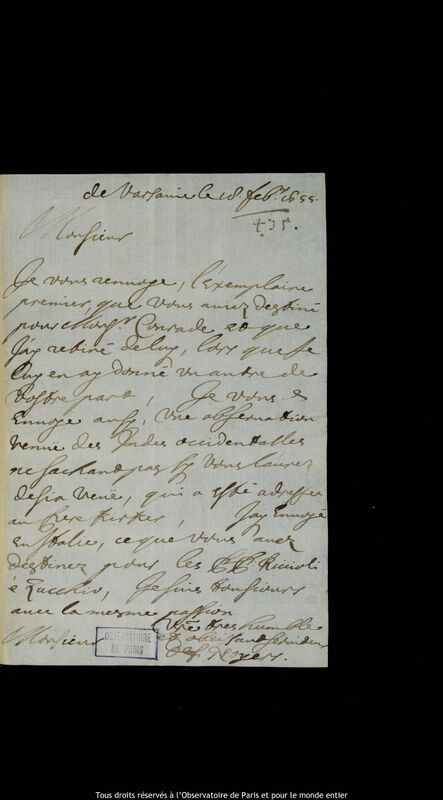 de Varsavie le 18. feb.r 1655.
435.
Monsieur
Je vous renvoye, l'exemplaire
premier, que vous aviez destiné
pour Mons.r Conrade et que
j'ay retiré de luy, lors que je
luy en ay donné un autre de
vostre part, Je vous
Envoye aussy, une observation
venüe des Indes occidentalles
ne sachant pas sy vous l'aurez
desia veue, qui a esté adressée
au Pere Kirker, Jay Envoyé
en Italie, ce que vous avez
destinez pour les PP. Riccioli
é Zucchio, Je suis tousiours
avec la mesme passion
Monsieur
Vre tres humble
et obeissant serviteur
Des Noyers.
OBSERVATOIRE
DE PARIS
Tous droits réservés à l'Observatoire de Paris et pour le monde entier